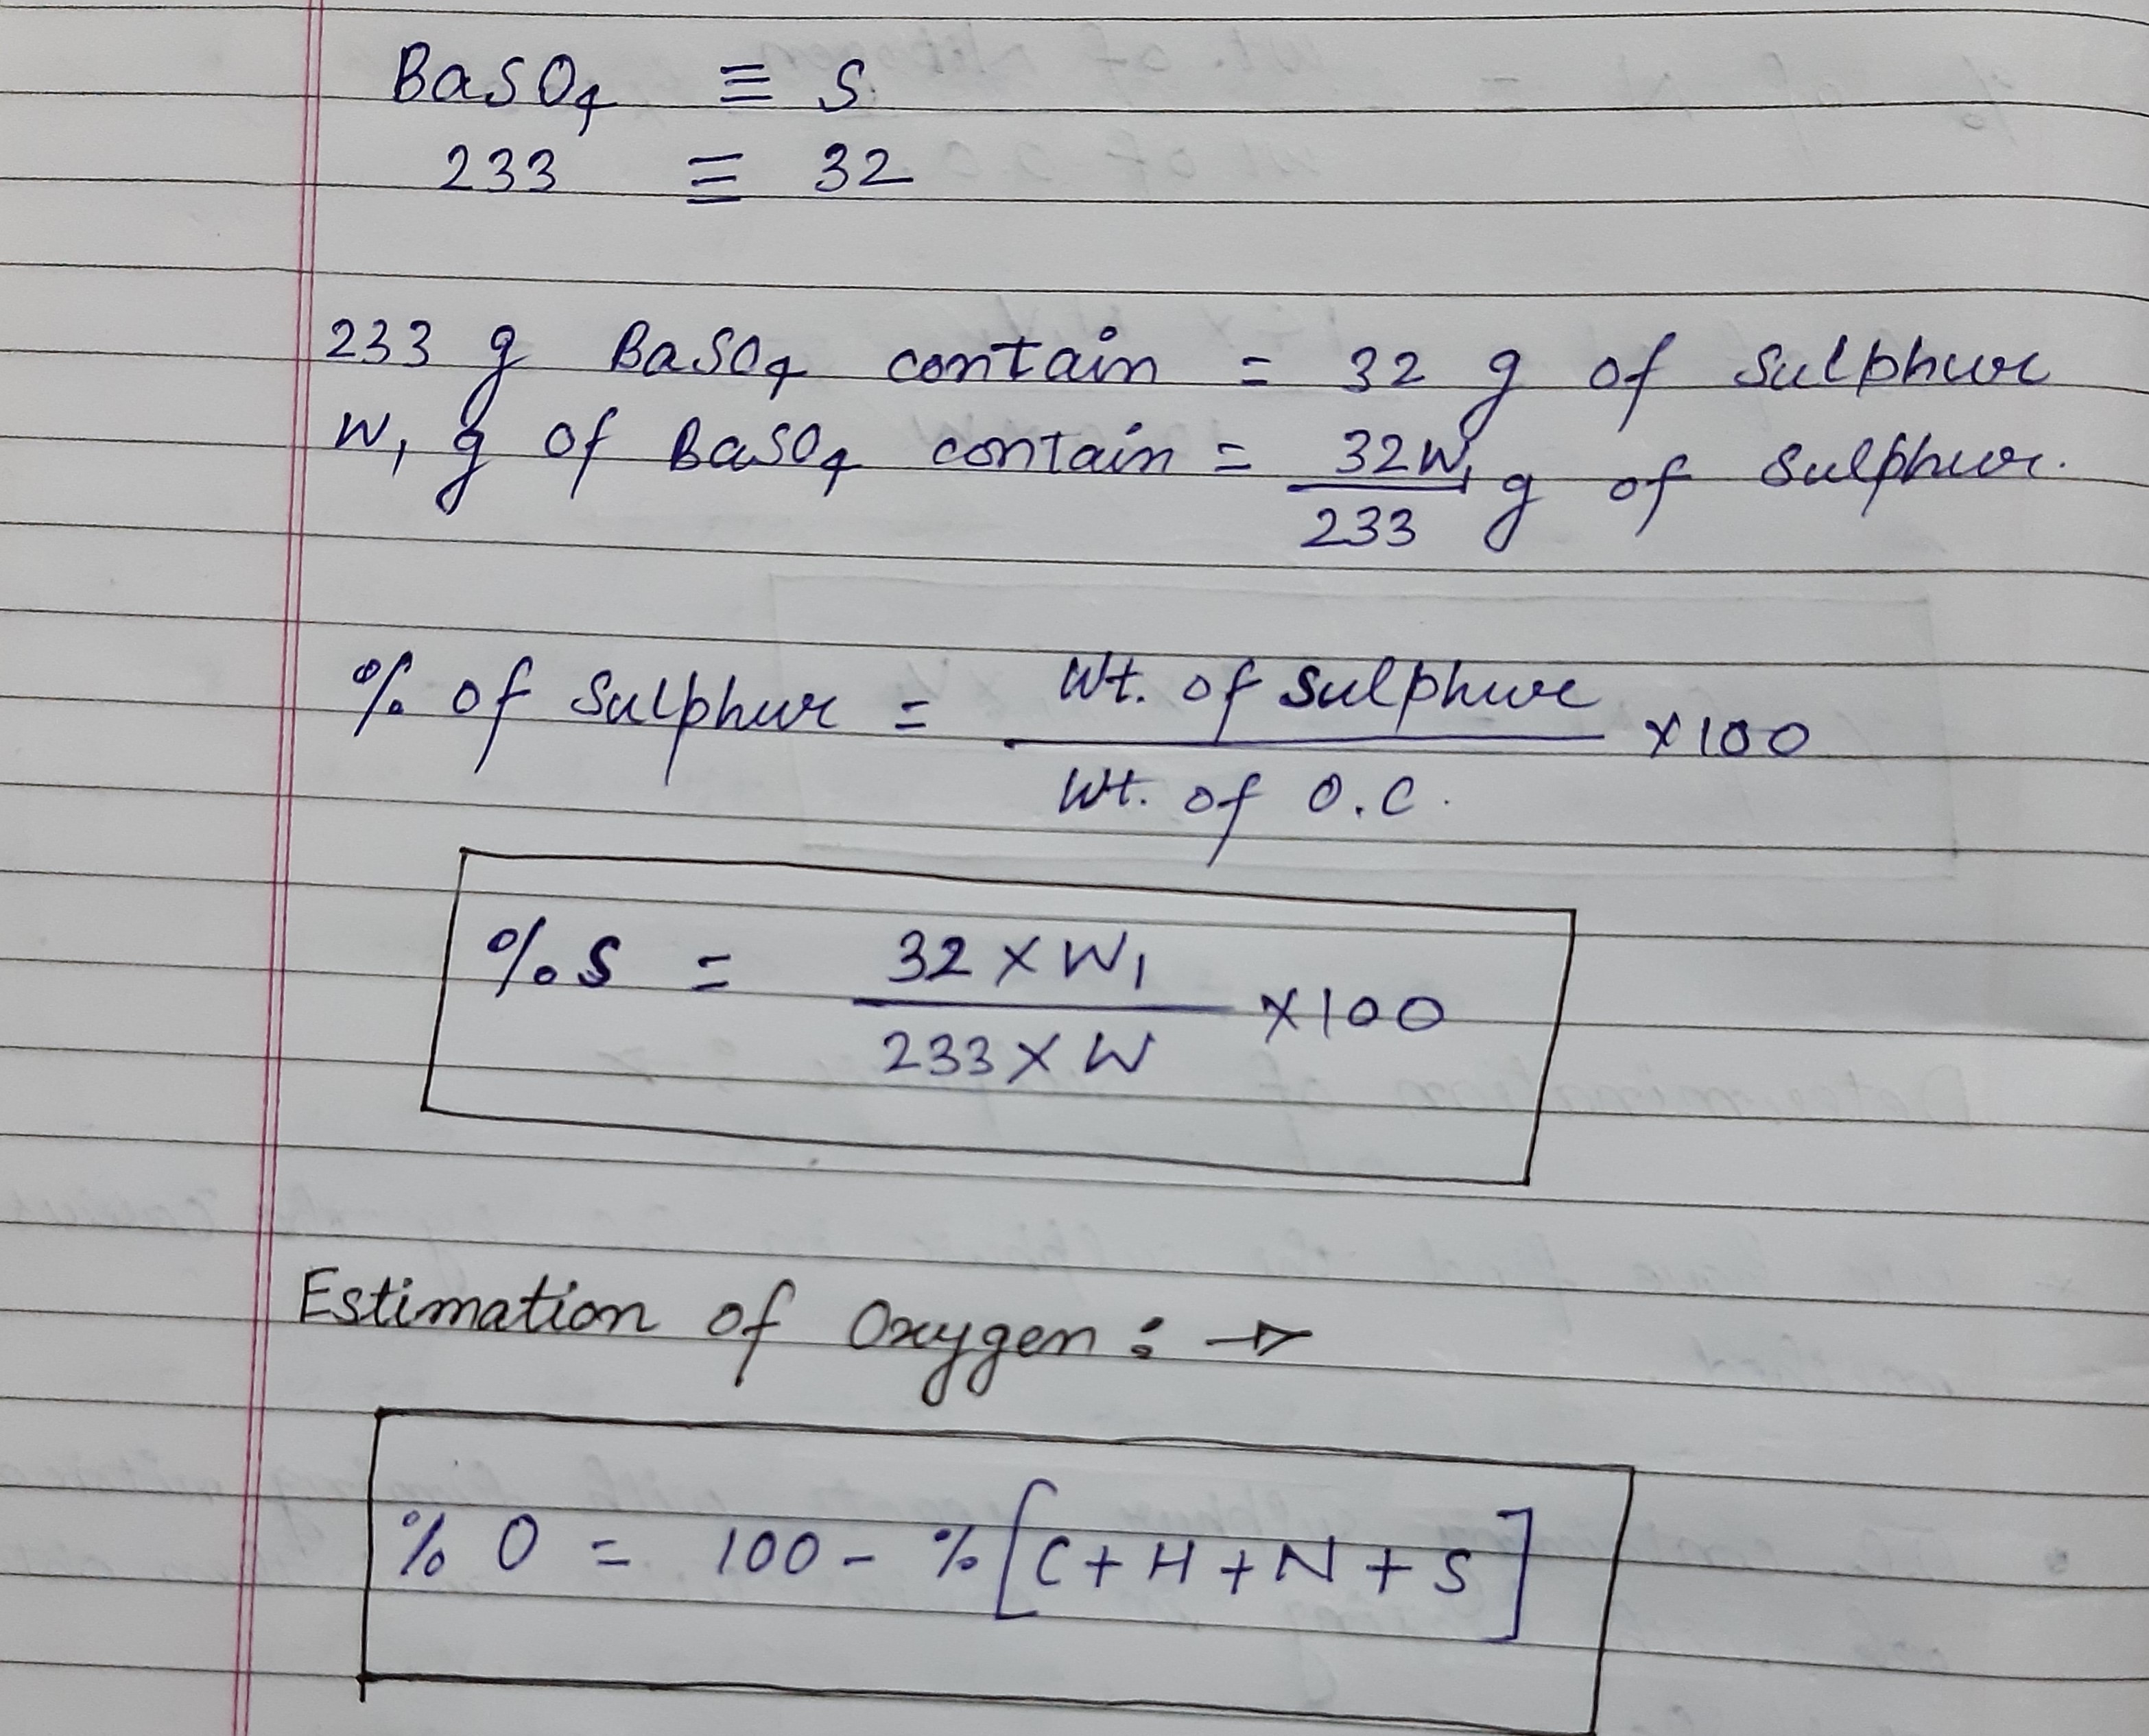 BaSO4 ≡ S
233 ≡ 32
233 g BaSO4 contain = 32 g of Sulphur
W1 g of BaSO4 contain = 32W1/233 g of Sulphur.
% of Sulphur = Wt. of Sulphur / Wt. of O.C. ×100
%S = 32 × W1 / 233 × W ×100
Estimation of Oxygen : →
% O = 100 - % [C + H + N + S]